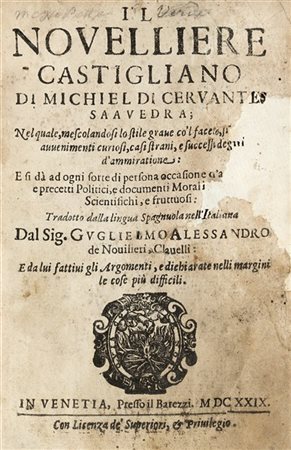 IL
NOVELLIERE
CASTIGLIANO
DI MICHIEL DI CERVANTES
SAAVEDRA;
Nel quale, mescolandosi lo stile graue co'l faceto, si
auuenimenti curiosi, casi strani, e successi degni
d'ammiratione:
E si dà ad ogni sorte di persona occasione
e precetti Politici, e documenti Morali
Scientifichi, e fruttuosi:
Tradotto dalla lingua Spagnuola nell'Italiana
Dal Sig. GVGLIELMO ALESSANDRO
de Nouilieri, Clauelli:
E da lui fattiui gli Argomenti, e dichiarate nelli margini
le cose più difficili.
IN VENETIA, Presso il Barezzi. MDCXXIX.
Con Licenza de' Superiori, & Priuilegio.